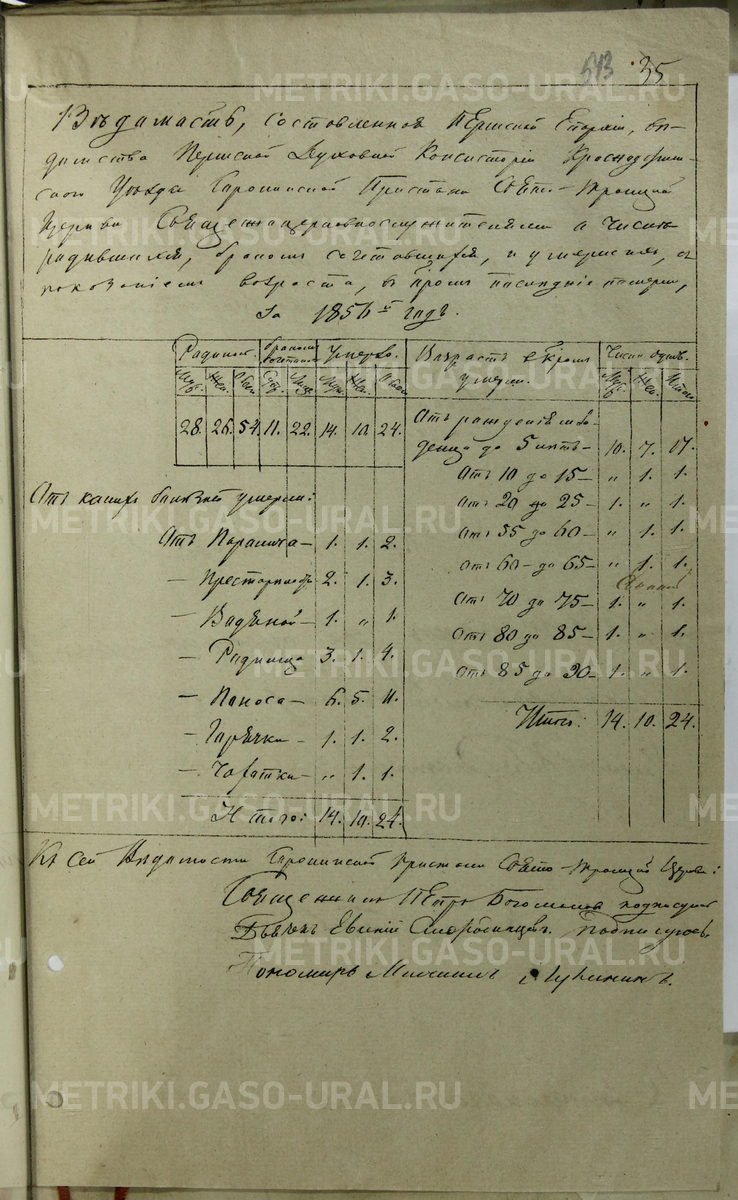 543 35
Вѣдомость, составленная Пермской Епархіи, вѣ-
домства Пермской Духовной Консисторіи Красноуфим-
скаго Уѣзда Пристани Свято-Троицкой
Церкви Священноцерковнослужителями о числѣ
родившихся, бракомъ сочетавшихся, и умершихъ, съ
показаніемъ возраста, въ кроемъ послѣдніе померли,
За 1856й годъ.
Родилось. Бракомъ сочетано Умерло. Возрастъ въ кроемъ умерли. Число душъ.
Муж. Жен. Итого Муж. Жен. Итого Муж. Жен. Итого
28. 26. 54. 11. 22. 14. 10. 24.
Отъ рожденія мла-
денца до 5 лѣтъ – 10. 7. 17.
Отъ 10 до 15 – „ 1. 1.
Отъ 20 до 25 – 1. „ 1.
Отъ 55 до 60 – „ 1. 1.
Отъ 60 – до 65 – „ 1. 1.
Отъ 70 до 75 – 1. „ 1.
Отъ 80 до 85 – 1. „ 1.
Отъ 85 до 90 – 1. „ 1.
Итого: 14. 10. 24.
Отъ какихъ болѣзней умерли:
Отъ Паралича – 1. 1. 2.
– 2. 1. 3.
– Водяной – 1. „ 1.
– Родимца 3. 1. 4.
– Поноса – 6. 5. 11.
– Горячки – 1. 1. 2.
– Чахотки – „ 1. 1.
Итого: 14. 10. 24.
Къ сей Вѣдомости Пристани Свято-Троицкой Церкви:
Священникъ Петръ подписуюсь
Дьяконъ Евгеній подписуюсь
Пономарь Михаилъ
METRIKI.GASO-URAL.RU